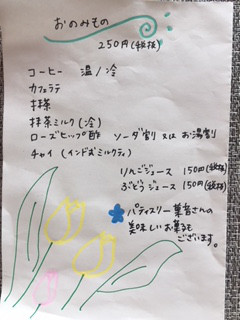 おのみもの
250円(税抜)
コーヒー 温/冷
カフェラテ
抹茶ミルク(冷)
ローズヒップ酢 ソーダ割 又は お湯割
チャイ(インド式ミルクティ)
りんごジュース 150円(税抜)
ぶどうジュース 150円(税抜)
パティスリー菓音さんの
美味しいお菓子も
ございます。